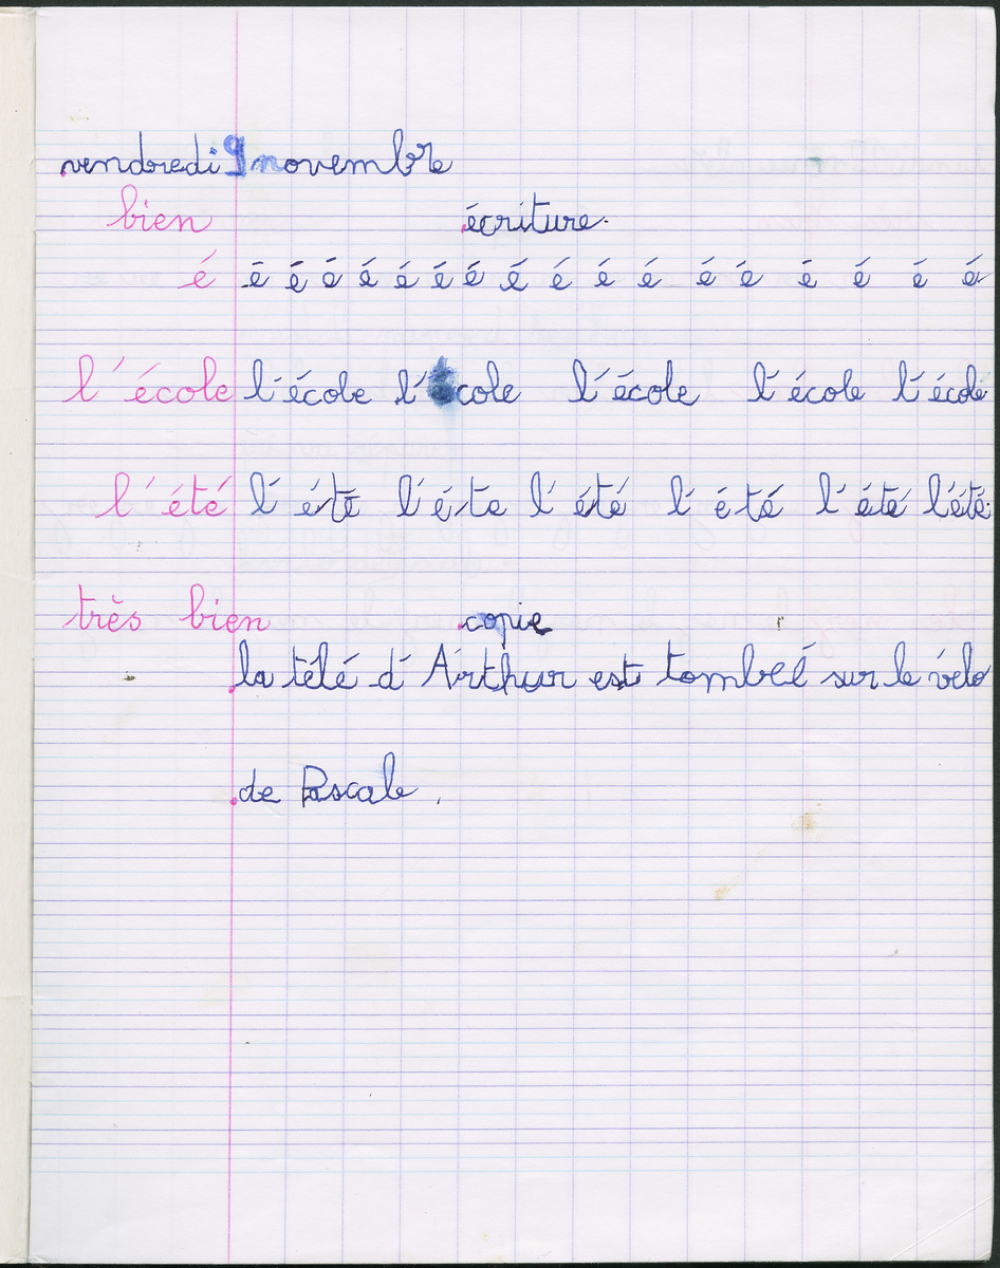 vendredi 9 novembre
bien écriture.
é é é é é é é é é é é é é é é é é é
l'école l'école l'école l'école l'école l'école
l'été l'été l'éte l'été l'été l'été l'été
très bien copie
la télé d'Arthur est tombé sur le vélo
de Pascale.